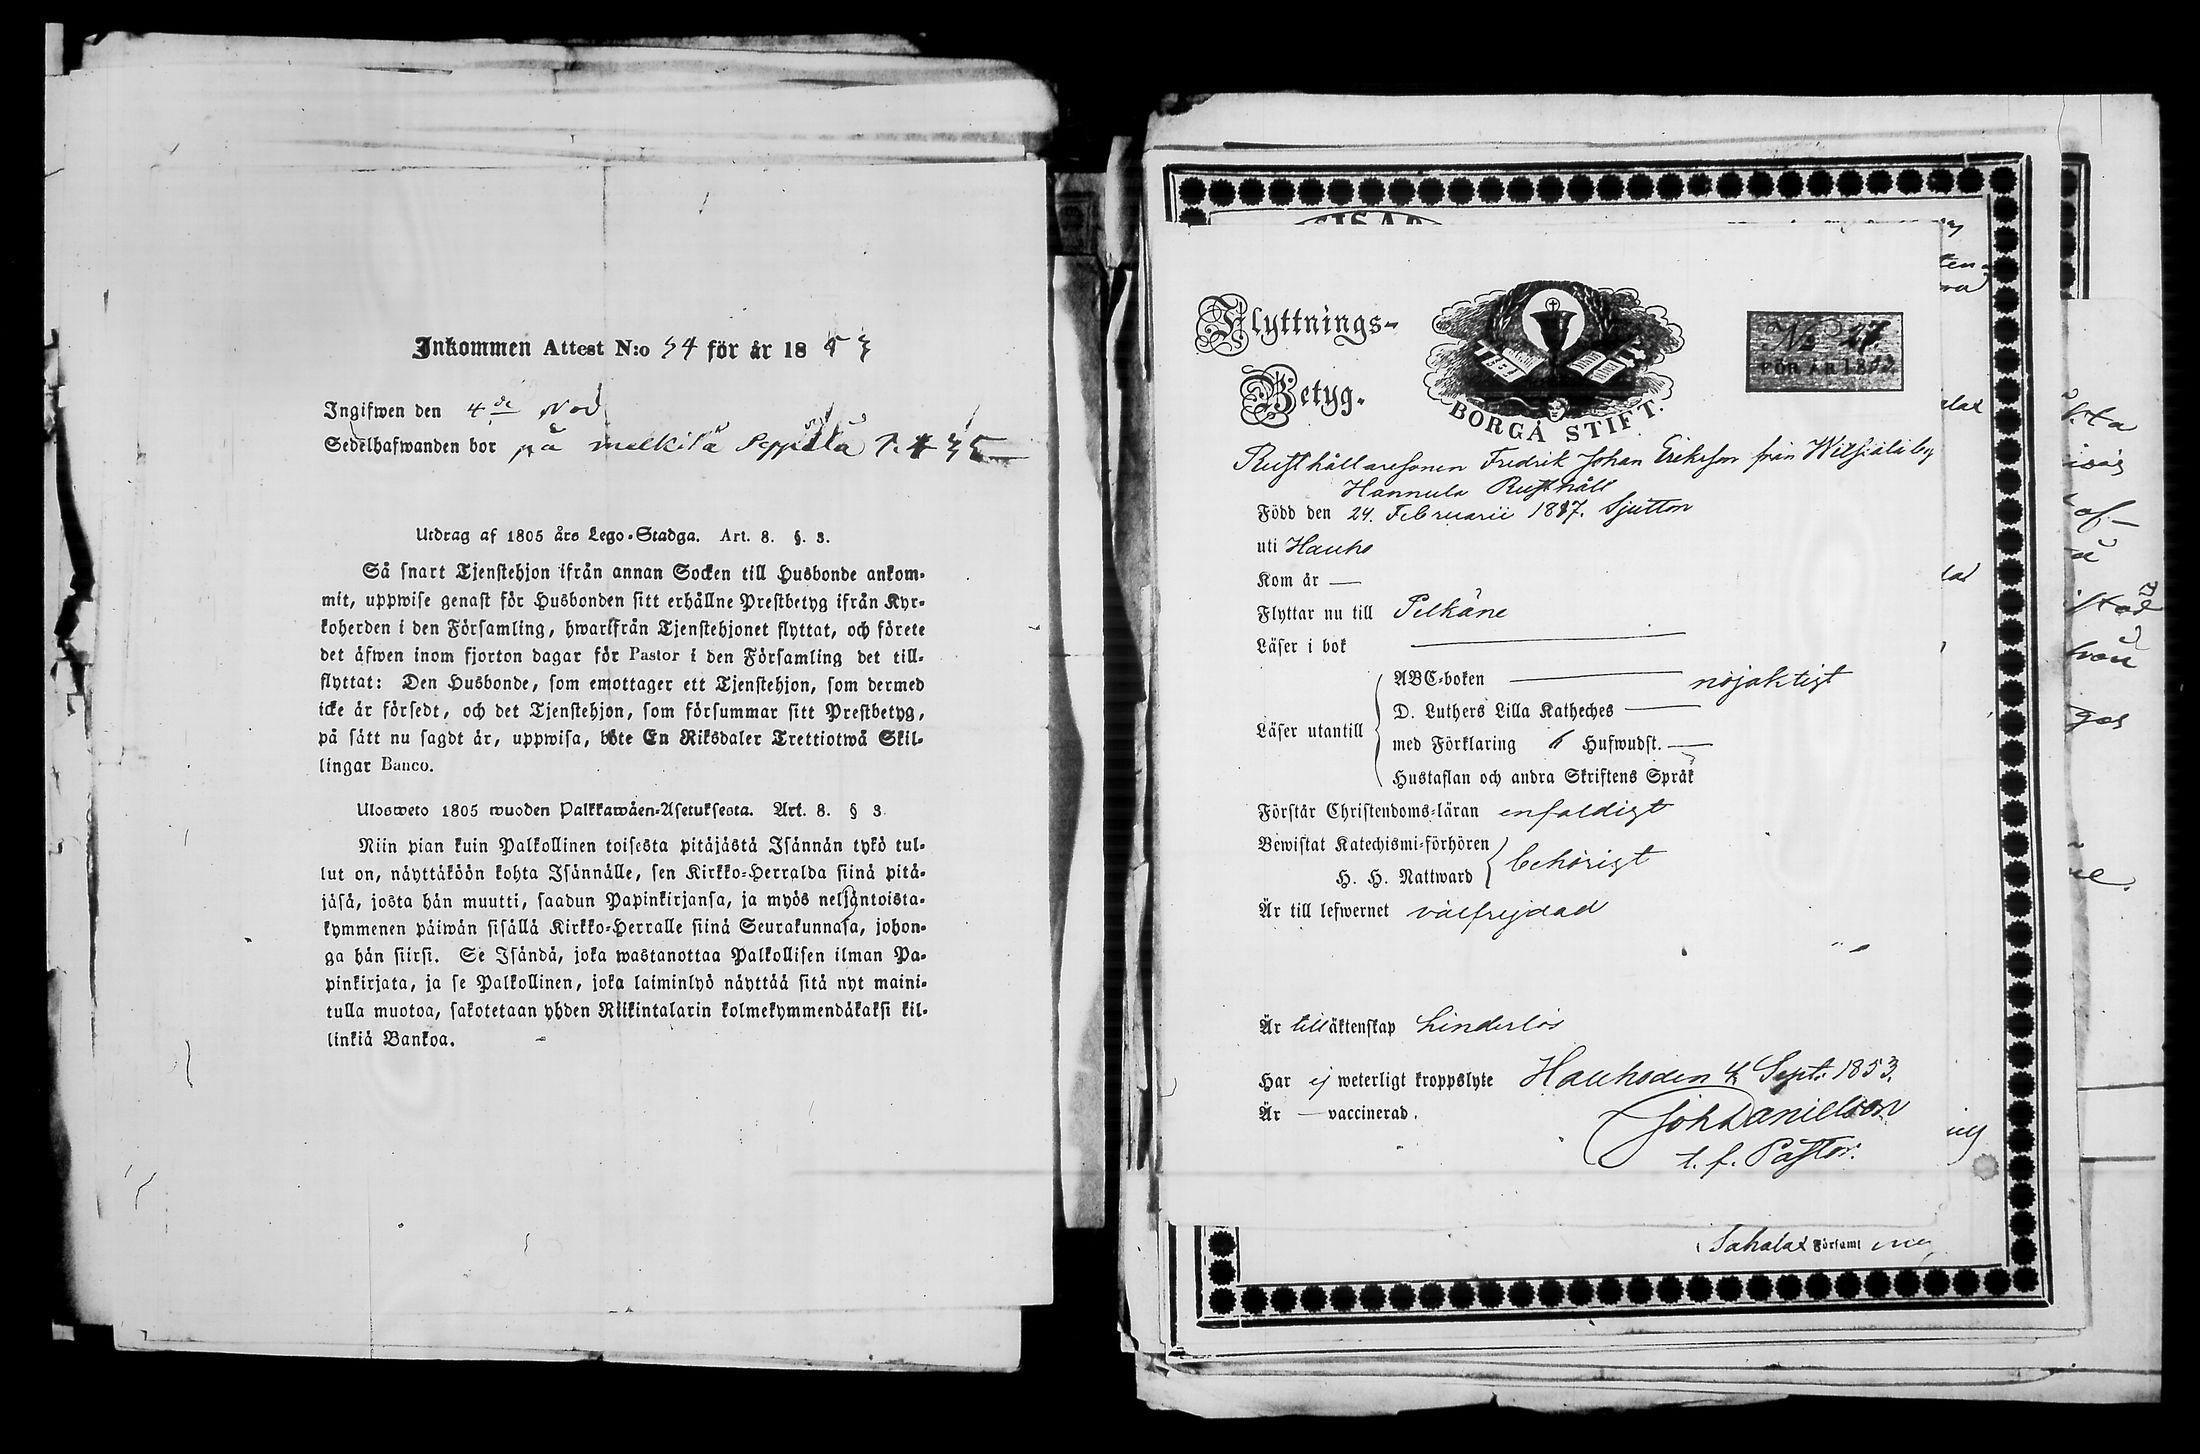 Inkommen Attest N:o 54 för år 1853
Ingifwen den 4de Nov
Sedelhafwanden bor på mälkilä Seppälä
Utdrag af 1805 års Lego-Stadga. Art. 8. §. 3.
Så snart Tjenstehjon ifrån annan Socken till Husbonde ankom-
mit, uppwise genast för Husbonden sitt erhållne Prestbetyg ifrån Kyr-
koherden i den Församling, hwarifrån Tjenstehjonet flyttat, och förete
det äfwen inom fjorton dagar för Pastor i den Församling det till-
flyttat: Den Husbonde, som emottager ett Tjenstehjon, som dermed
icke är försedt, och det Tjenstehjon, som försummar sitt Prestbetyg,
på sätt nu sagdt är, uppwisa, böte En Riksdaler Trettiotwå Skil-
lingar Banco.
Ulosweto 1805 wuoden Palkkawäen-Asetuksesta. Art. 8. § 3.
Niin pian kuin Palkollinen toisesta pitäjästä Isännän tykö tul-
lut on, näyttäköön kohta Isännälle, sen Kirkko-Herralda siinä pitä-
jäsä, josta hän muutti, saadun Papinkirjansa, ja myös neljäntoista-
kymmenen päiwän sisällä Kirkko-Herralle siinä Seurakunnasa, johon-
ga hän siirsi. Se Isändä, joka wastanottaa Palkollisen ilman Pa-
pinkirjata, ja se Palkollinen, joka laiminlyö näyttää sitä nyt maini-
tulla muotoa, sakotetaan yhden Riikintalarin kolmekymmendäkaksi kil-
linkiä Bankoa.
Flyttnings-
Betyg.
BORGÅ STIFT.
No 27.
FÖR ÅR 1853.
Rusthållaresonen Fredrik Johan Eriksson från Witsiälä by
Hannula Rusthåll
Född den 24. Februarii 1817. Sjutton
uti Hauho
Kom år —
Flyttar nu till Pelkäne
Läser i bok —
Läser utantill
ABC-boken — nöjaktigt
D. Luthers Lilla Katheches —
med Förklaring 6 Hufwudst. —
Hustaflan och andra Skriftens Språk
Förstår Christendoms-läran enfaldigt
Bewistat Katechismi-förhören
H. H. Nattward behörigt
Är till lefwernet välfrejdad
Är till äktenskap hinderlös
Har ej weterligt kroppslyte Hauho den 4 Sept. 1853.
Är — vaccinerad.
Joh Danielson
t. f. Pastor.
Sahalax Församl